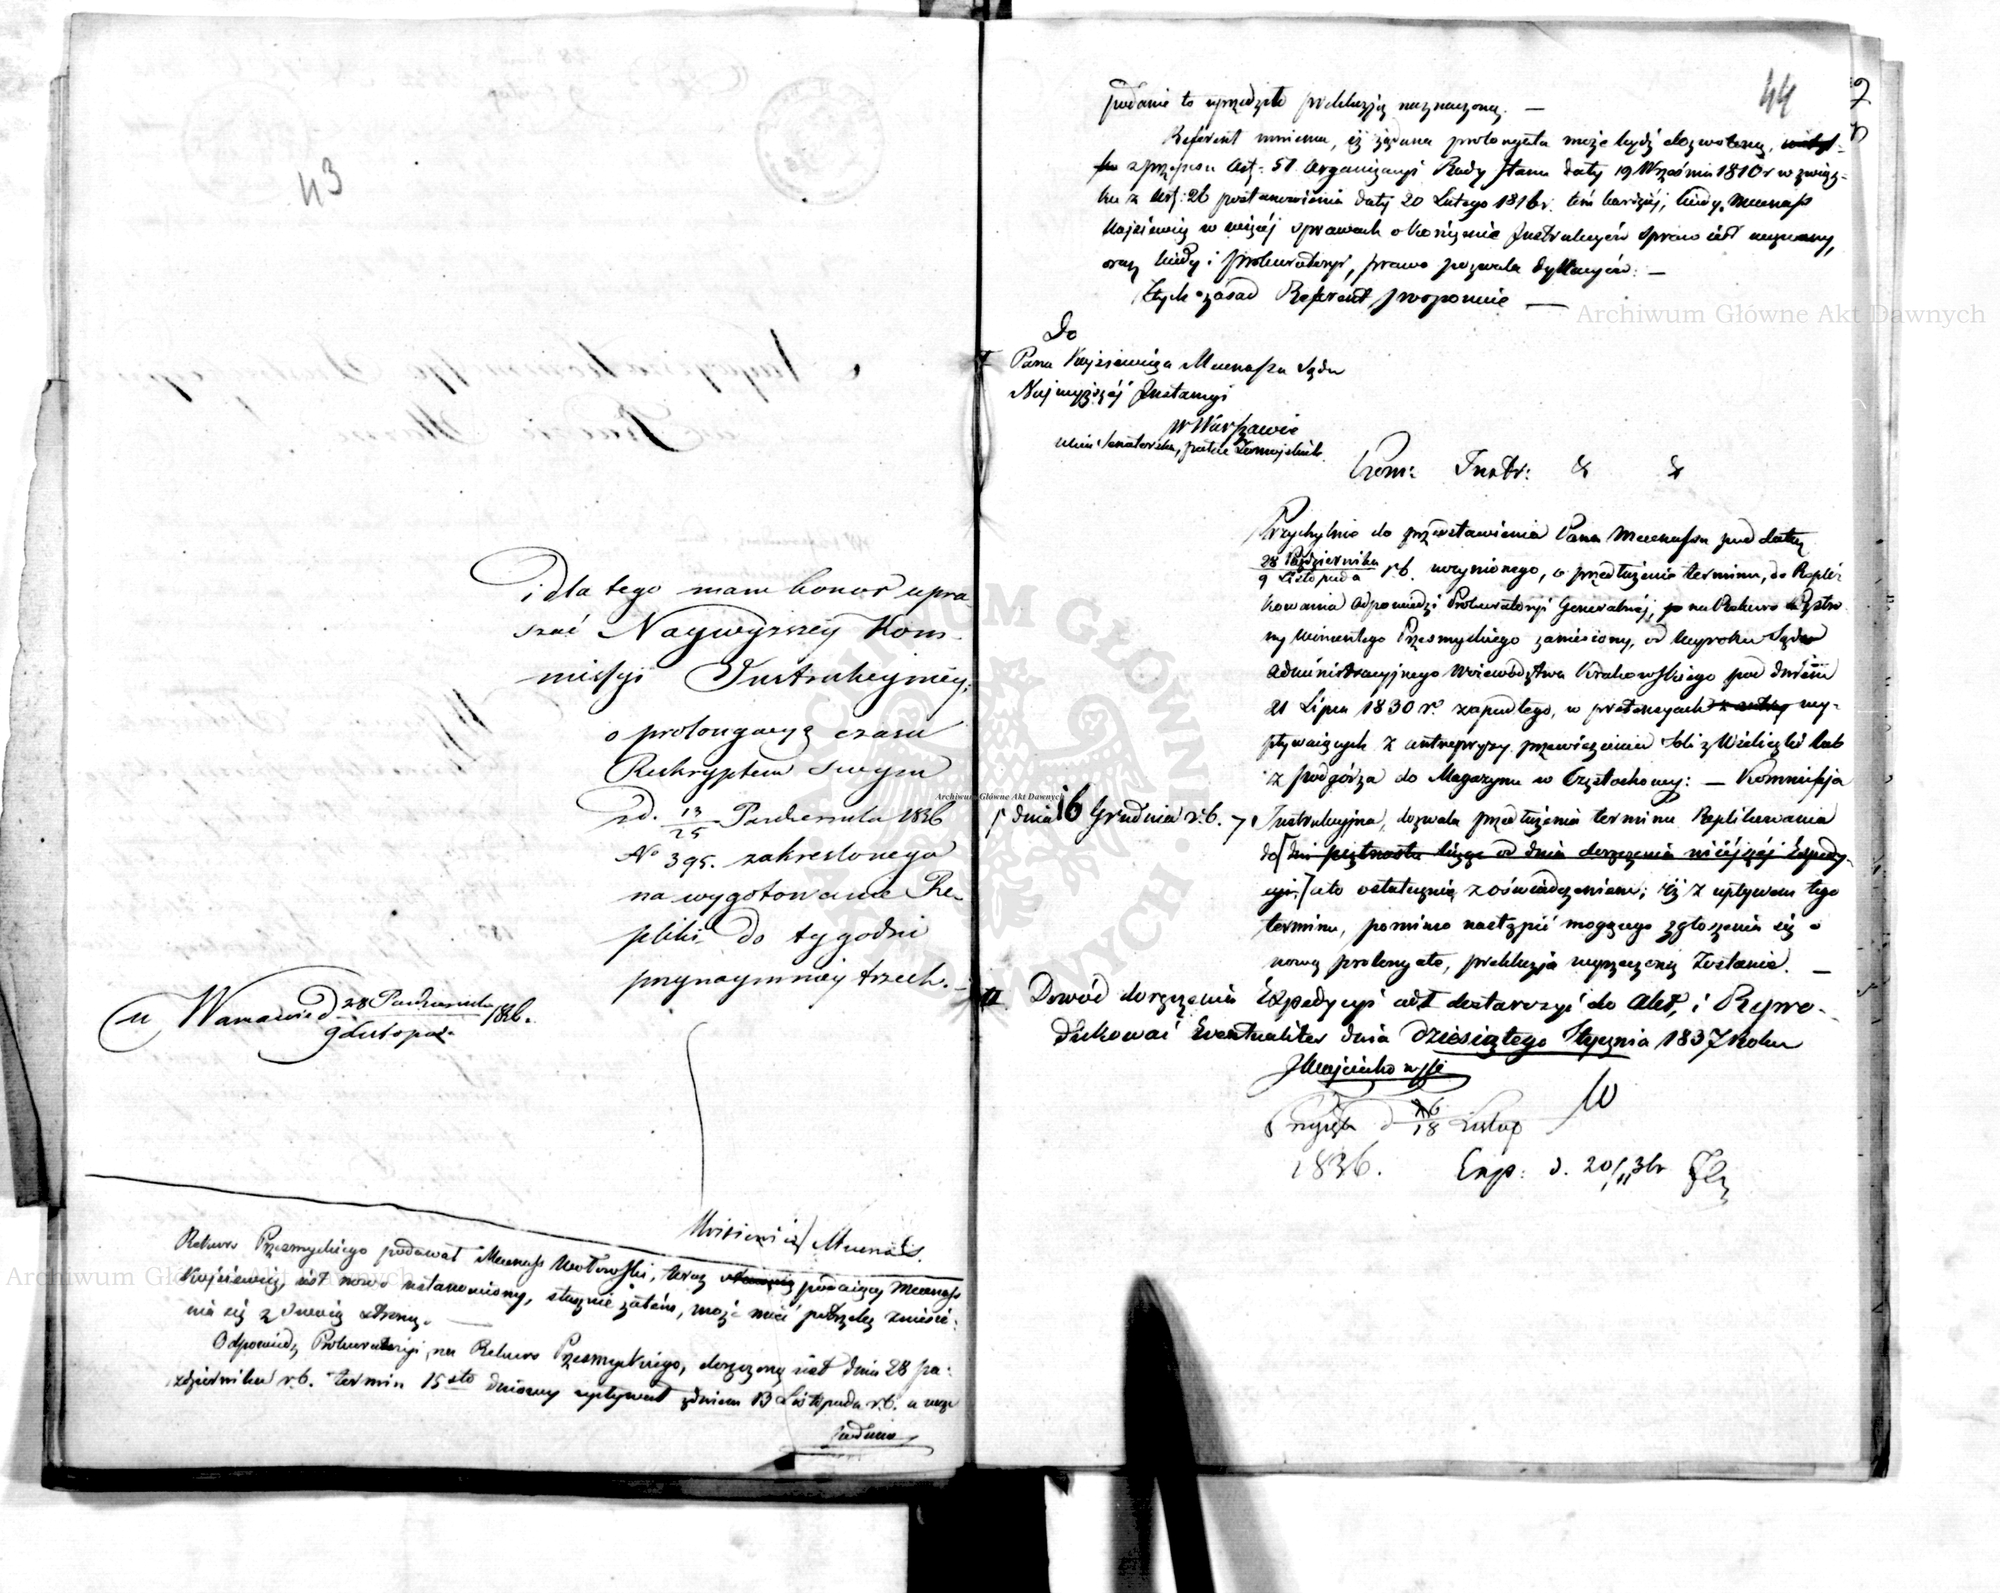 43
i dla tego mam honor upra-
szać Naywyższey Kom-
missyi Instrukcyiney,
o prolongacyą czasu
Reskryptem swym
z d. 13/25 Października 1836
No 395. zakreslonego
na wygotowanie Re-
pliki do tygodni
przynaymniey trzech.
w Warszawie d 28 Października / 9 Listopada 1836.
Mecenas.
Rekurs Przesmyckiego podawał Mecenas Wołowski, teraz podaiący Mecenas
Kajsiewicz, iest nowo ustanowiony, słusznie zatém, może mieć potrzebę zniesie-
nia się z Swoią stroną. —
Odpowiedź Prokuratoryi, na Rekurs Przesmyckiego, doręczoną iest dnia 28 pa-
zdziernika r.b. termin 15sto dniowy upływał z dniem 13 Listopada r.b. a
44
podanie to uprzedziło prekluzją naznaczoną. —
Referent mniema, iż żądana prolongata może bydź dozwoloną,
z przepisu Art: 51 Organizacyi Rady Stanu daty 19 Września 1810 r w związ-
ku z Art: 26 postanowienia daty 20 Lutego 1816 r. tém bardziéj, kiedy Mecenass
Kajsiewicz w sprawach o Instrukcyów
oraz kiedy i Prokuratoryi, prawo pozwala dyllacyów: —
Z tych zasad Referent proponuie —
Do
I Pana Kajsiewicza Mecenassa Sądu
Najwyższéj Instancyi
w Warszawie
ulica Senatorska, pałac Zamojskich.
Kom: Instr: & &
Przychylnie do przedstawienia Pana Mecenassa pod datą
28 Października / 9 Listopada r.b. uczynionego, o przedłużenie terminu, do Repli-
kowania Odpowiedzi Prokuratoryi Generalnéj, na Rekurs ze Stro-
ny Wincentego Przesmyckiego zaniesiony, od Wyroku Sądu
Administracyjnego Województwa Krakowskiego pod dniem
21 Lipca 1830 r. zapadłego, w pretensyach wy-
pływaiących z antrepryzy przewiezienia Soli z Wieliczki lub
z Podgórza do Magazynu w Częstochowy: — Kommissja
Instrukcyjna, dozwala przedłużenia terminu Replikowania
[dnia 16 Grudnia r.b.
do [dni piętnastu licząc od dnia doręczenia niniéjszéj Expedy-
cyi,] a to ostatecznie z oświadczeniem; iż z upływem tego
terminu, pomimo nastąpić mogącego zgłoszenia się o
nową prolongatę, prekluzja wyrzeczoną zostanie. —
II Dowód doręczenia Expedycyi ad I dostarczyć do Akt, i Repro-
dukować Eventualiter dnia dziesiątego Stycznia 1837 roku
Przyięta d 6/18 Listop
1836. Exp: d. 20/11 36 r